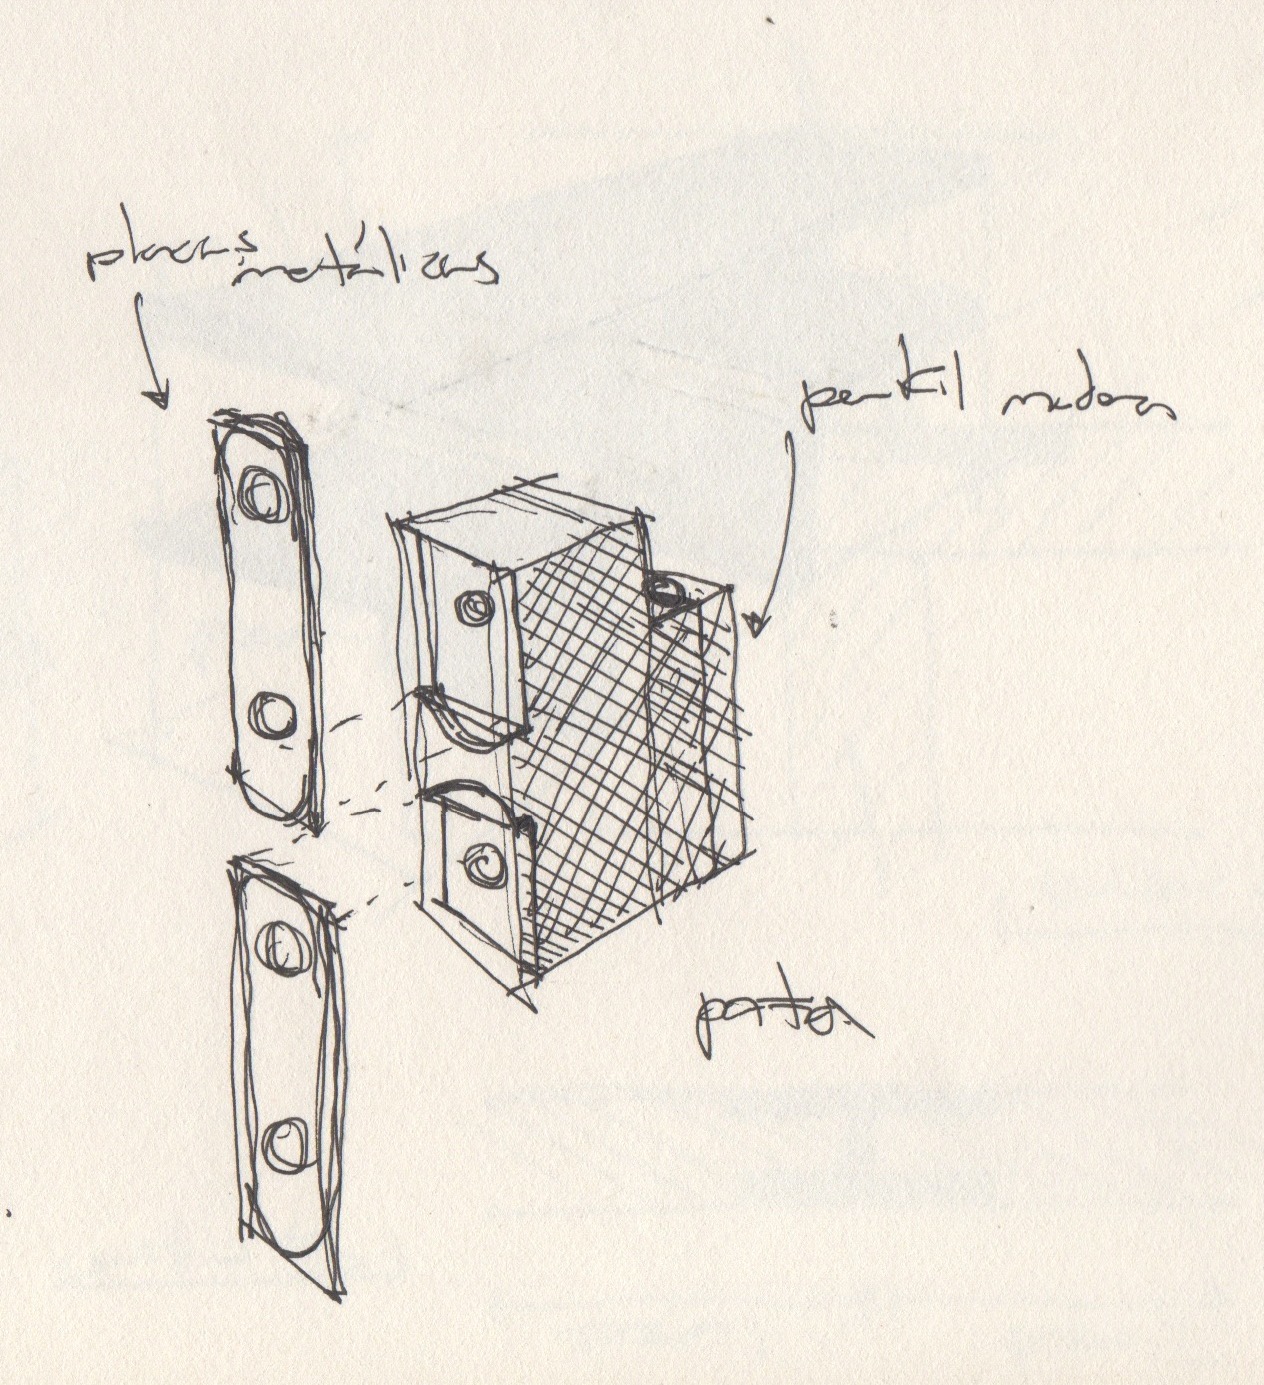 placas metálicas
perfil madera